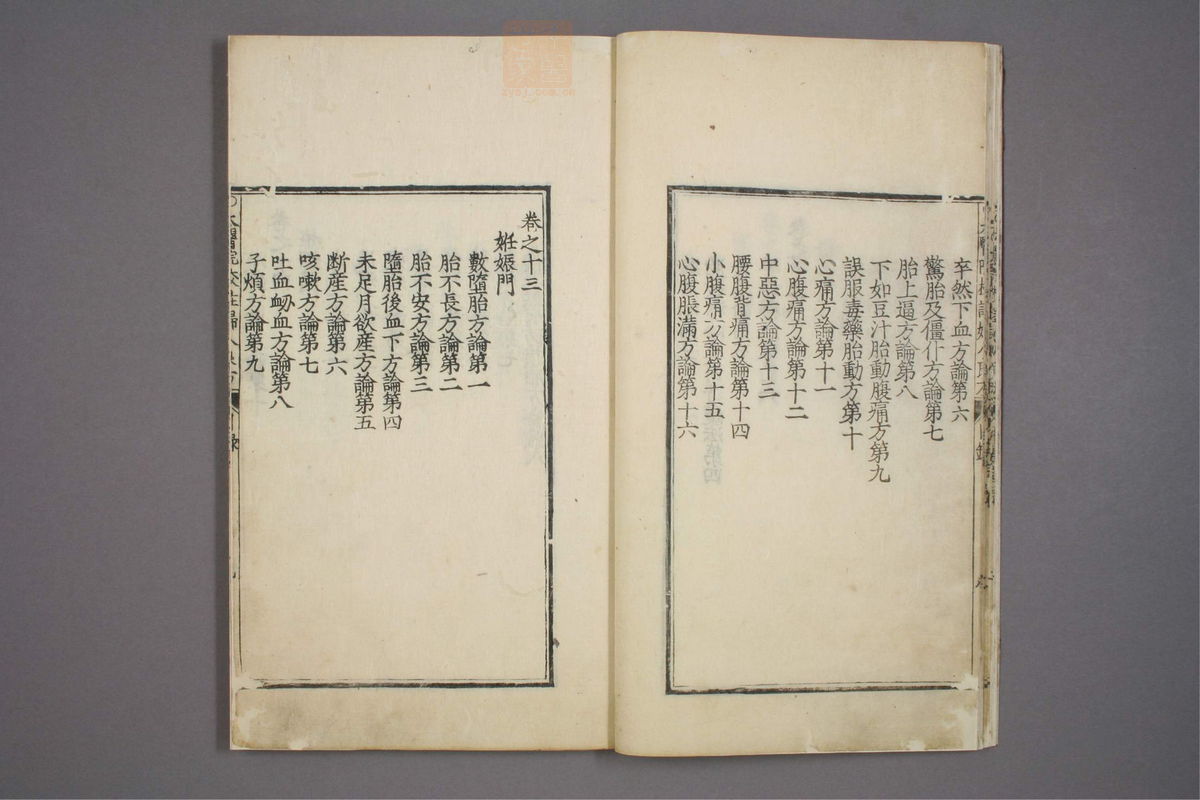 卒然下血方論第六
驚胎及僵仆方論第七
胎上逼方論第八
下如豆汁胎動腹痛方第九
誤服毒藥胎動方第十
心痛方論第十一
心腹痛方論第十二
中惡方論第十三
腰腹背痛方論第十四
小腹痛方論第十五
心腹脹滿方論第十六
卷之十三
姙娠門
數墮胎方論第一
胎不長方論第二
胎不安方論第三
墮胎後血下方論第四
未足月欲産方論第五
断産方論第六
咳嗽方論第七
吐血衂血方論第八
子煩方論第九